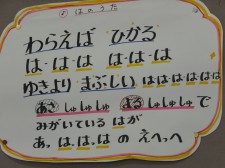 ♪ はのうた
わらえば ひかる
は・は・は は・は・は
ゆきより まぶしい はははははは
あさ しゅしゅしゅ よる しゅしゅしゅ で
みがいている はが
あ、は、は、は の えへっへ